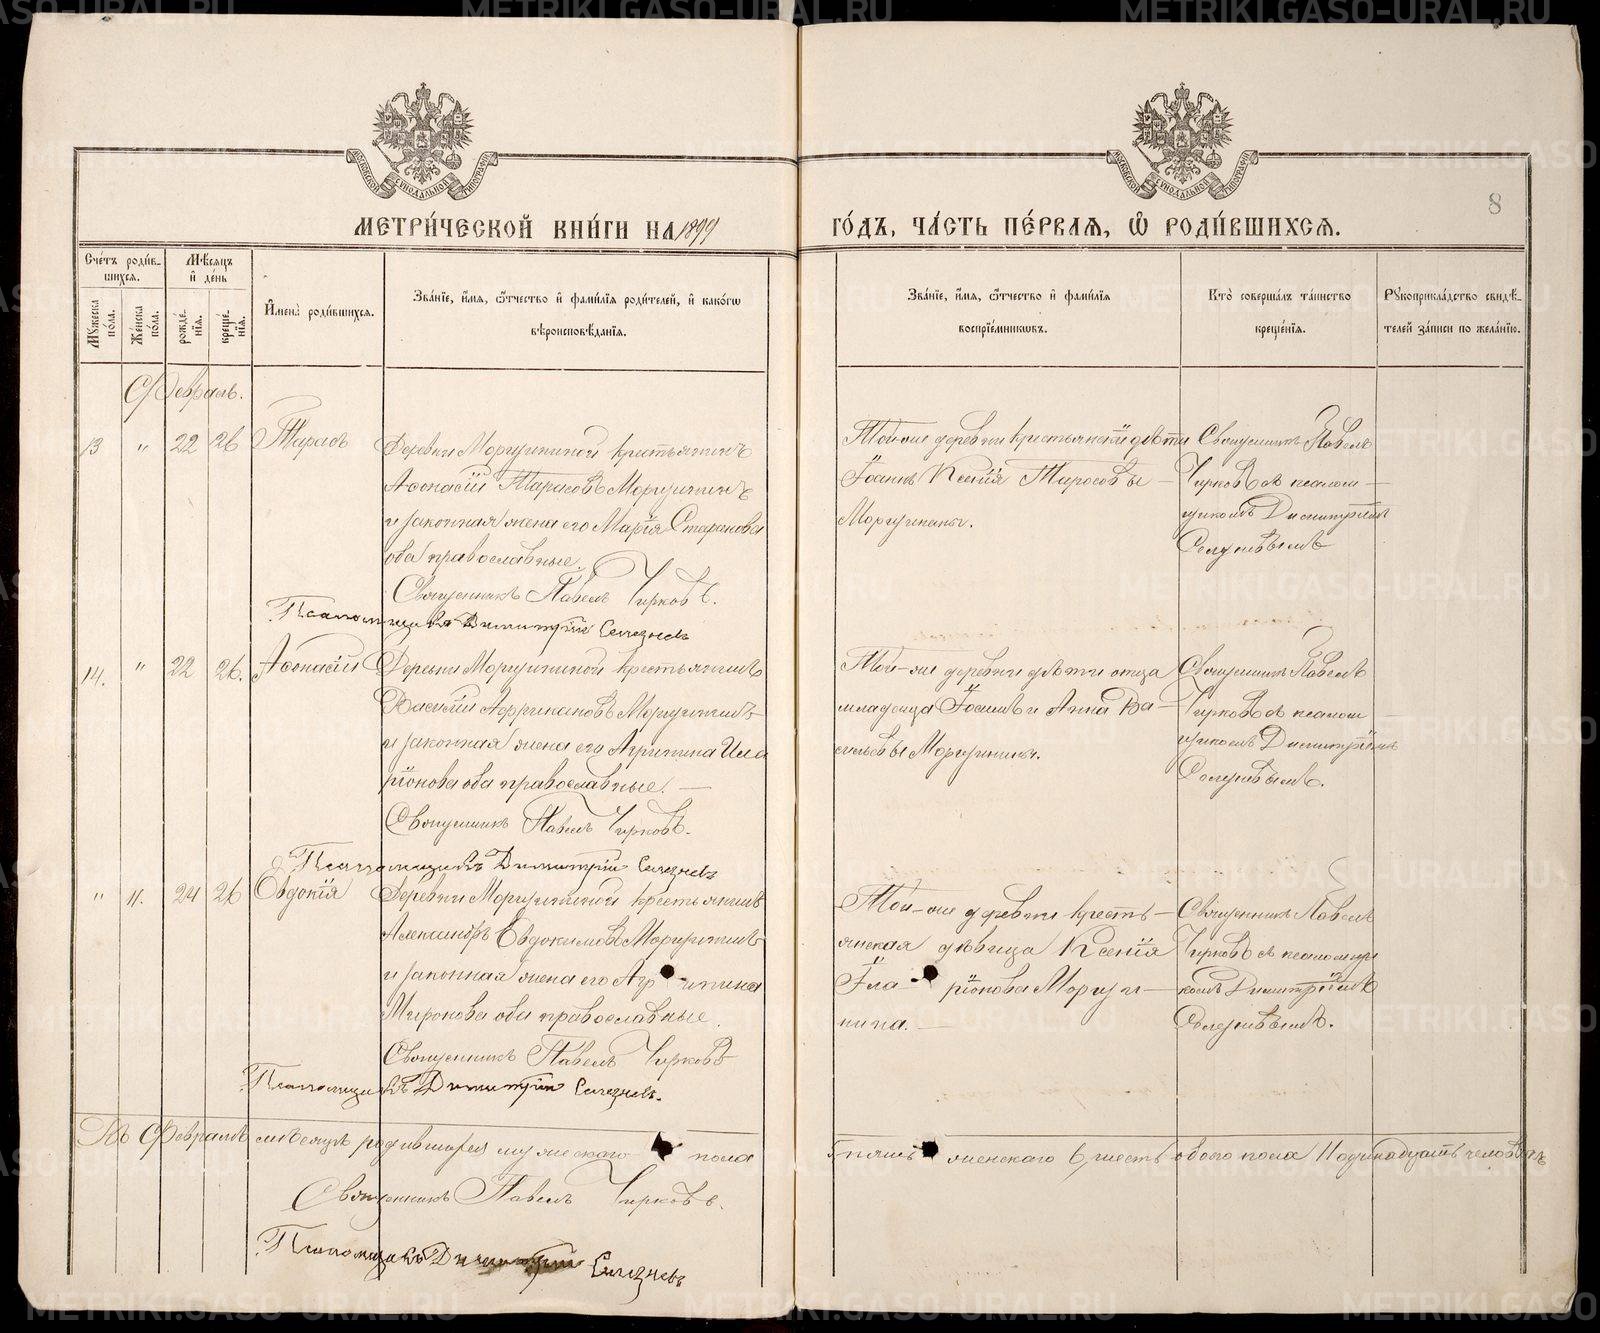 МЕТРИ́ЧЕСКОЙ КНИ́ГИ НА 1899 ГО́ДЪ, ЧА́СТЬ ПЕ́РВАѦ, Ѡ҆ РОДИ́ВШИХСѦ.
8
Сче́тъ роди́вшихся.
Мѣ́сяцъ и҆ де́нь
Мꙋ́жеска по́ла.
Же́нска по́ла.
рожде́нїѧ.
креще́нїѧ.
И҆мена̀ роди́вшихсѧ.
Зва́нїе, и҆́мѧ, ѻ҆́тчество и҆ фами́лїѧ роди́телей, и҆ како́гѡ вѣроисповѣ́данїѧ.
Зва́нїе, и҆́мѧ, ѻ҆́тчество и҆ фами́лїѧ воспрїе́мникѡвъ.
Кто̀ соверша́лъ та́инство креще́нїѧ.
Рꙋкоприкла́дство свидѣ́телей за́писи по жела́нїю.
Февраль.
13 " 22 26 Тарасъ
Деревни Моргуниной крестьянинъ
Аѳонасій Тарасовъ Моргунинъ
и законная жена его Марія Стефанова
оба православные.
Священникъ Павелъ Чирковъ.
Псаломщикъ Димитрій Селезневъ
Той-же деревни крестьянскіи дѣти
Іоаннъ Ксенія Тарасовы
Моргунины.
Священникъ Павелъ
Чирковъ съ псалом-
щикомъ Димитріемъ
Селезневымъ
14. " 22 26. Аѳонасій
Деревни Моргуниной крестьянинъ
Василій Африкановъ Моргунинъ
и законная жена его Агрипина Ила
ріонова оба православные.
Священникъ Павелъ Чирковъ.
Псаломщикъ Димитрій Селезневъ
Той-же деревни дѣти отца
младенца Іосифъ и Анна Ва-
сильевы Моргунины.
Священникъ Павелъ
Чирковъ съ псалом
щикомъ Димитріемъ
Селезневымъ.
" 11. 24 26 Евдокія
Деревни Моргуниной крестьянинъ
Александръ Евдокимовъ Моргунинъ
и законная жена его Агрипина
Миронова оба православные.
Священникъ Павелъ Чирковъ
Псаломщикъ Димитрій Селезневъ.
Той-же деревни кресть-
янская дѣвица Ксенія
Іларіонова Моргу-
нина.
Священникъ Павелъ
Чирковъ съ псаломщи
комъ Димитріемъ
Селезневымъ.
Въ Февралѣ мѣсяцѣ родившихся мужескаго пола 5 пять женскаго 6, шесть обоего пола 11 одинадцать человѣкъ
Священникъ Павелъ Чирковъ.
Псаломщикъ Димитрій Селезневъ